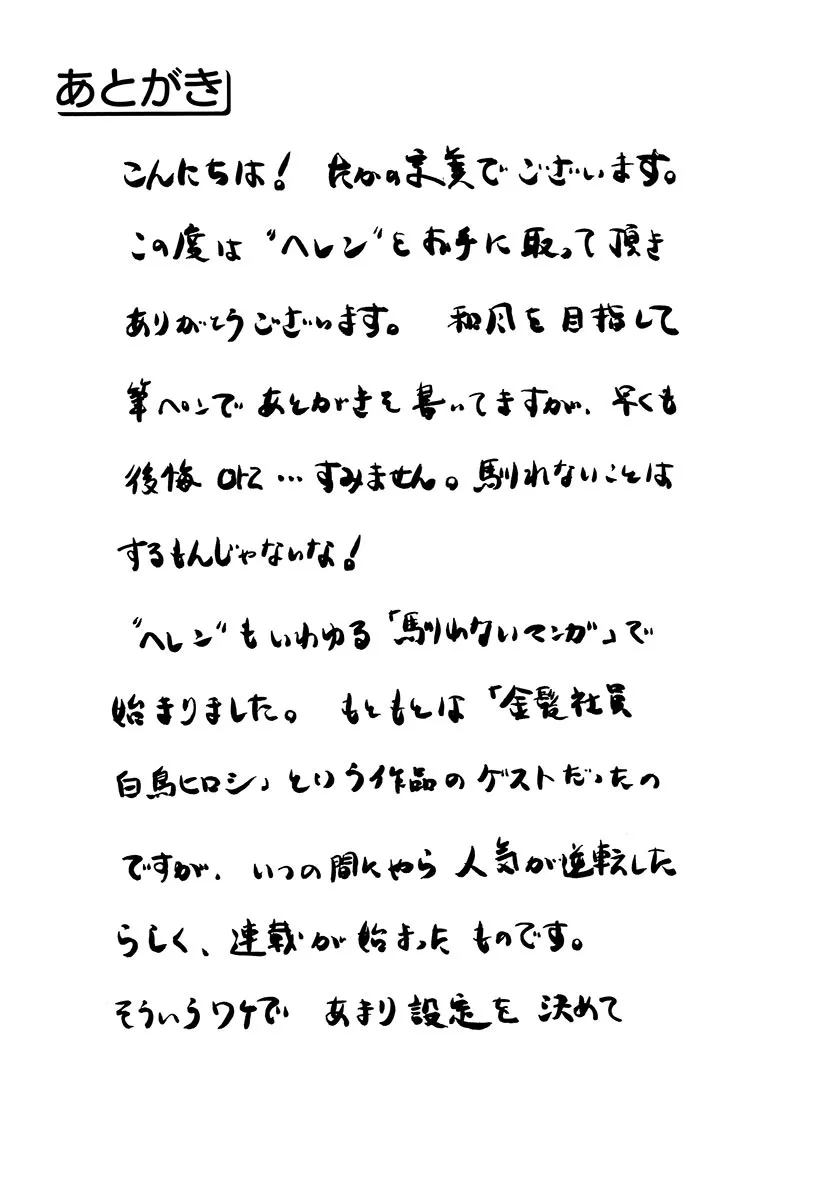 あとがき
こんにちは! たかの宗美でございます。
この度は"ヘレン"をお手に取って頂き
ありがとうございます。 和風を目指して
筆ペンであとがきを書いてますが、早くも
後悔orz…すみません。馴れないことは
するもんじゃないな!
"ヘレン"もいわゆる「馴れないマンガ」で
始まりました。 もともとは「金髪社員
白鳥ヒロシ」という作品のゲストだったの
ですが、いつの間にやら人気が逆転した
らしく、連載が始まったものです。
そういうワケで あまり設定を決めて